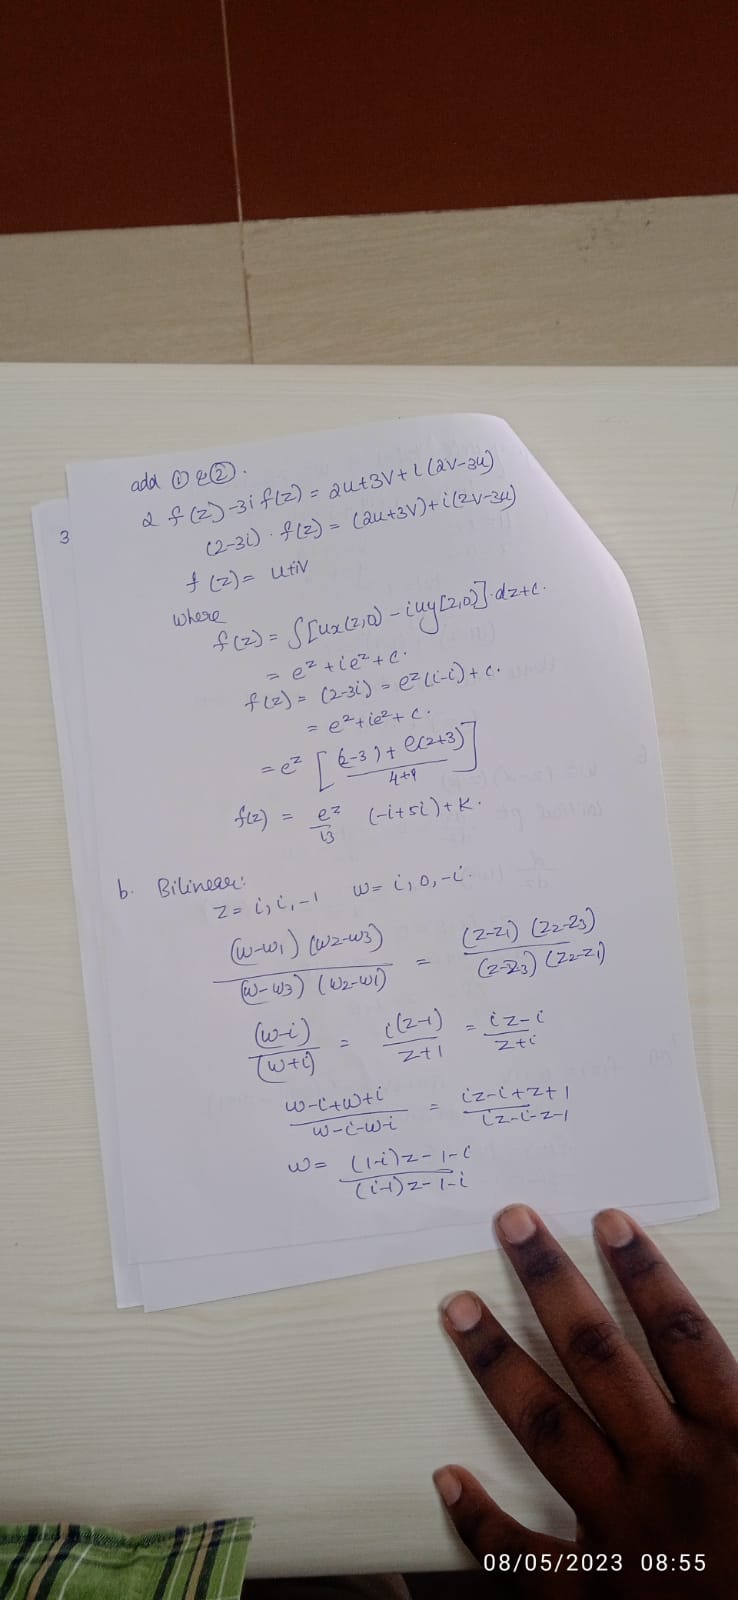 add ① & ②.
3
2 f(z)-3i f(z) = 2u+3v+i(2v-3u)
(2-3i) · f(z) = (2u+3v)+i(2v-3u)
f(z) = u+iv
where
f(z) = ∫[ux(z,0) - iuy[z,0)].dz+c.
= e^z + ie^z + c.
f(z) = (2-3i) = e^z (i-i)+c.
= e^z+ie^z+c.
= e^z [ (2-3)+ e(2+3) / 4+9 ]
f(z) = e^z/13 (-i+5i)+K.
b. Bilinear:
z= i, i, -1 w= i, 0, -i.
(w-w1) (w2-w3) / (w-w3) (w2-w1) = (z-z1) (z2-z3) / (z-z3) (z2-z1)
(w-i) / (w+i) = i(z-1) / z+1 = iz-i / z+i
w-i+w+i / w-i-w-i = iz-i+z+1 / iz-i-z-1
w= (1-i)z-1-i / (i-1)z-1-i
08/05/2023 08:55